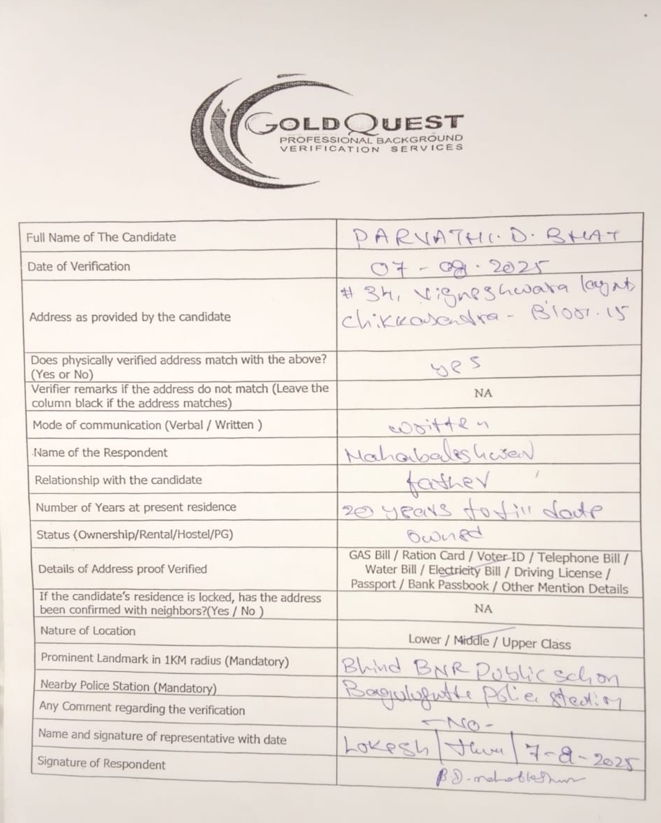 GOLDQUEST
PROFESSIONAL BACKGROUND
VERIFICATION SERVICES
Full Name of The Candidate
PARVATHI. D. BHAT
Date of Verification
07 - 08 - 2025
Address as provided by the candidate
# 34, Vigneshwara
Chikkasandra -
Does physically verified address match with the above?
(Yes or No)
yes
Verifier remarks if the address do not match (Leave the
column black if the address matches)
NA
Mode of communication (Verbal / Written )
written
Name of the Respondent
Relationship with the candidate
father
Number of Years at present residence
20 years to till date
Status (Ownership/Rental/Hostel/PG)
owned
Details of Address proof Verified
GAS Bill / Ration Card / Voter ID / Telephone Bill /
Water Bill / Electricity Bill / Driving License /
Passport / Bank Passbook / Other Mention Details
If the candidate's residence is locked, has the address
been confirmed with neighbors?(Yes / No )
NA
Nature of Location
Lower / Middle / Upper Class
Prominent Landmark in 1KM radius (Mandatory)
Bhind BNR Public
Nearby Police Station (Mandatory)
Any Comment regarding the verification
- No -
Name and signature of representative with date
Lokesh | 7-8-2025
Signature of Respondent